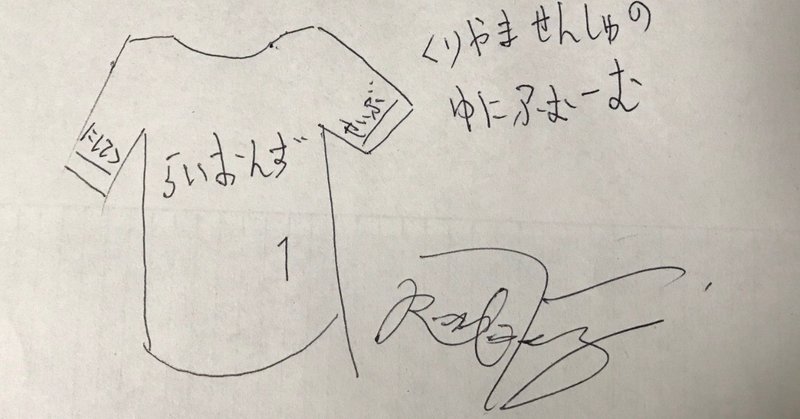 くりやませんしゅの
ゆにふぉーむ
にしてつ
せいぶ
らいおんず
1